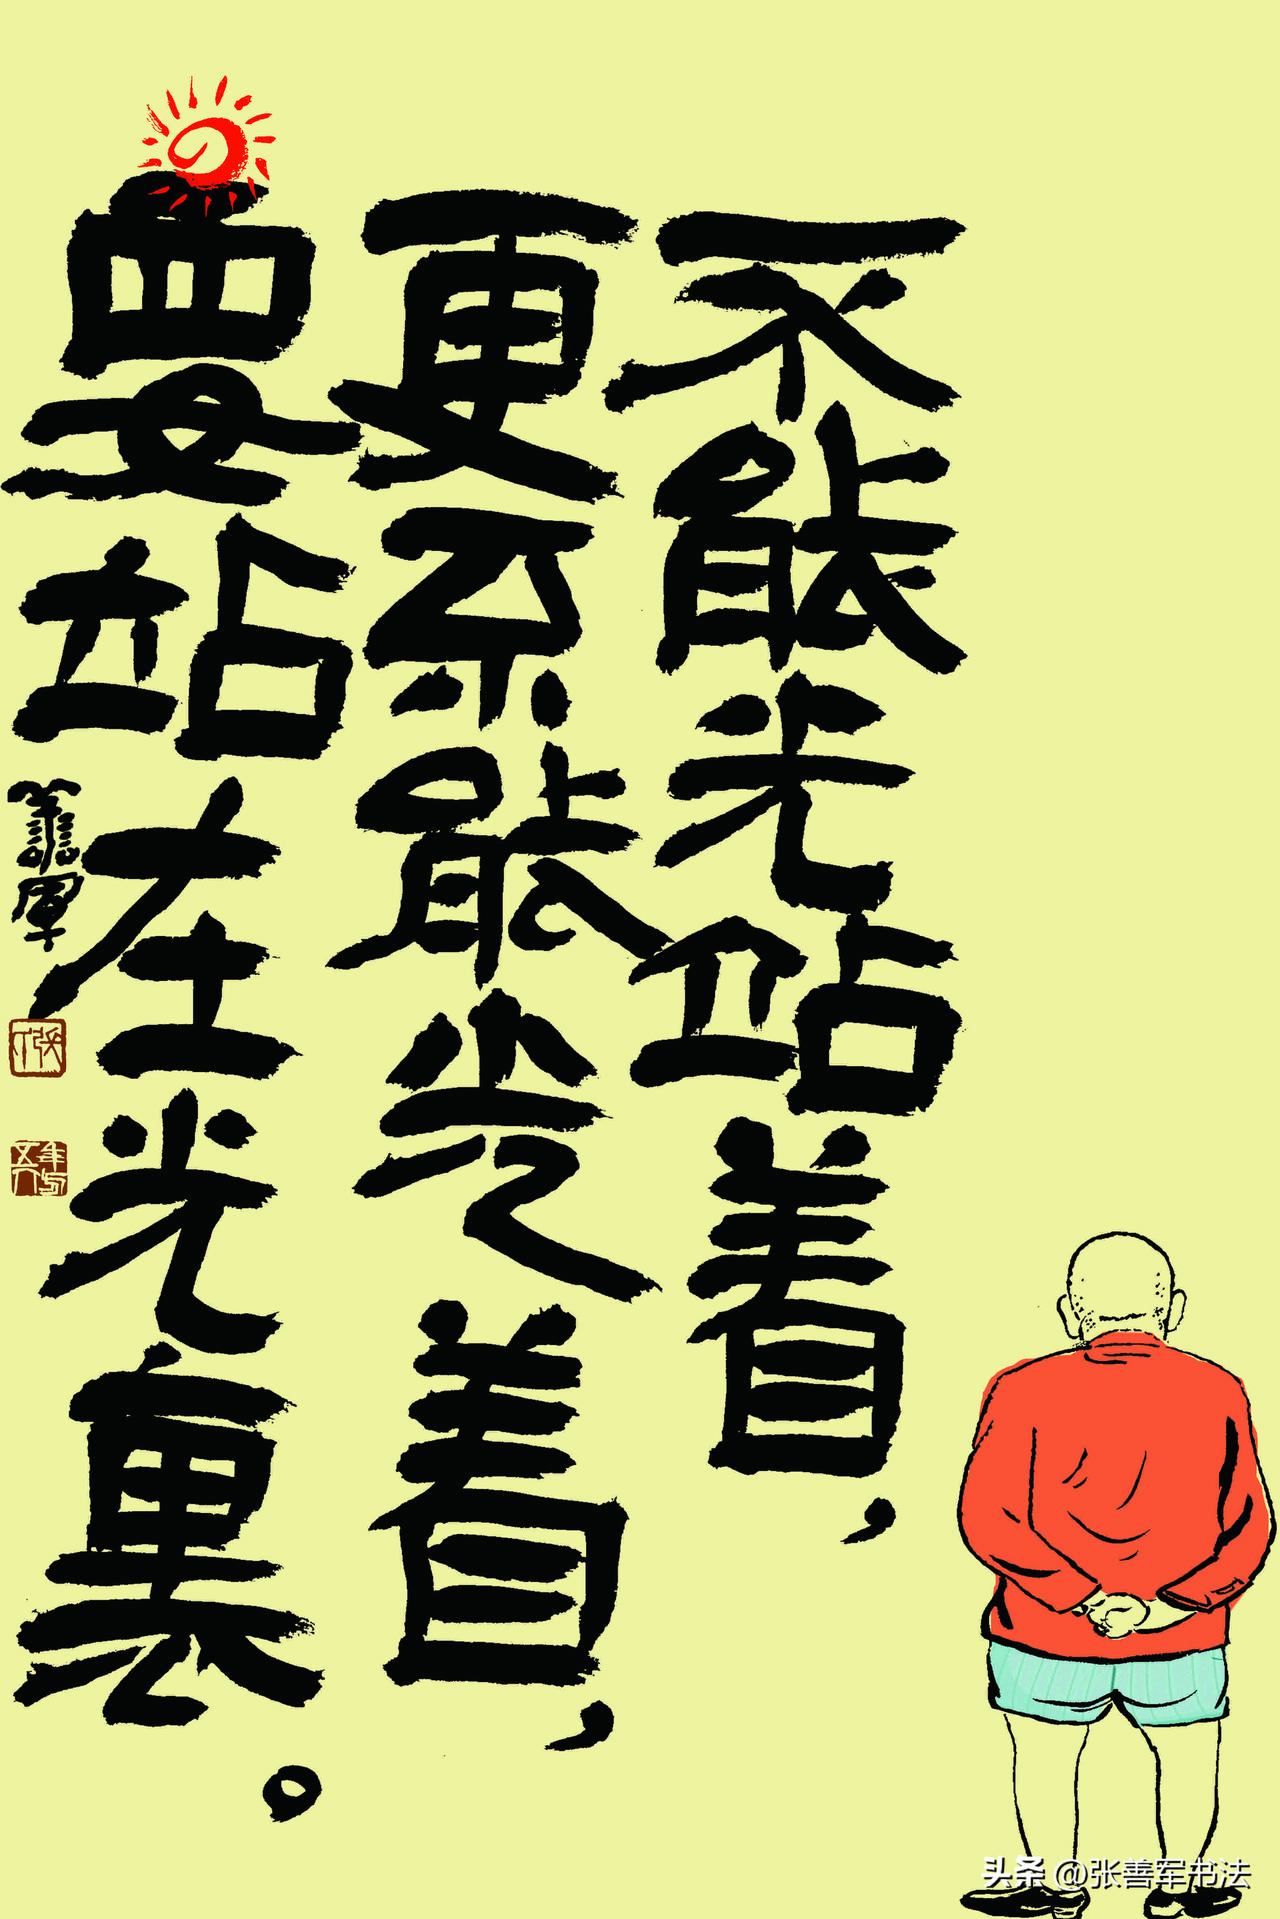 不能光站着，
更不能光着，
要站在光裏。
善軍
头条 @张善军书法